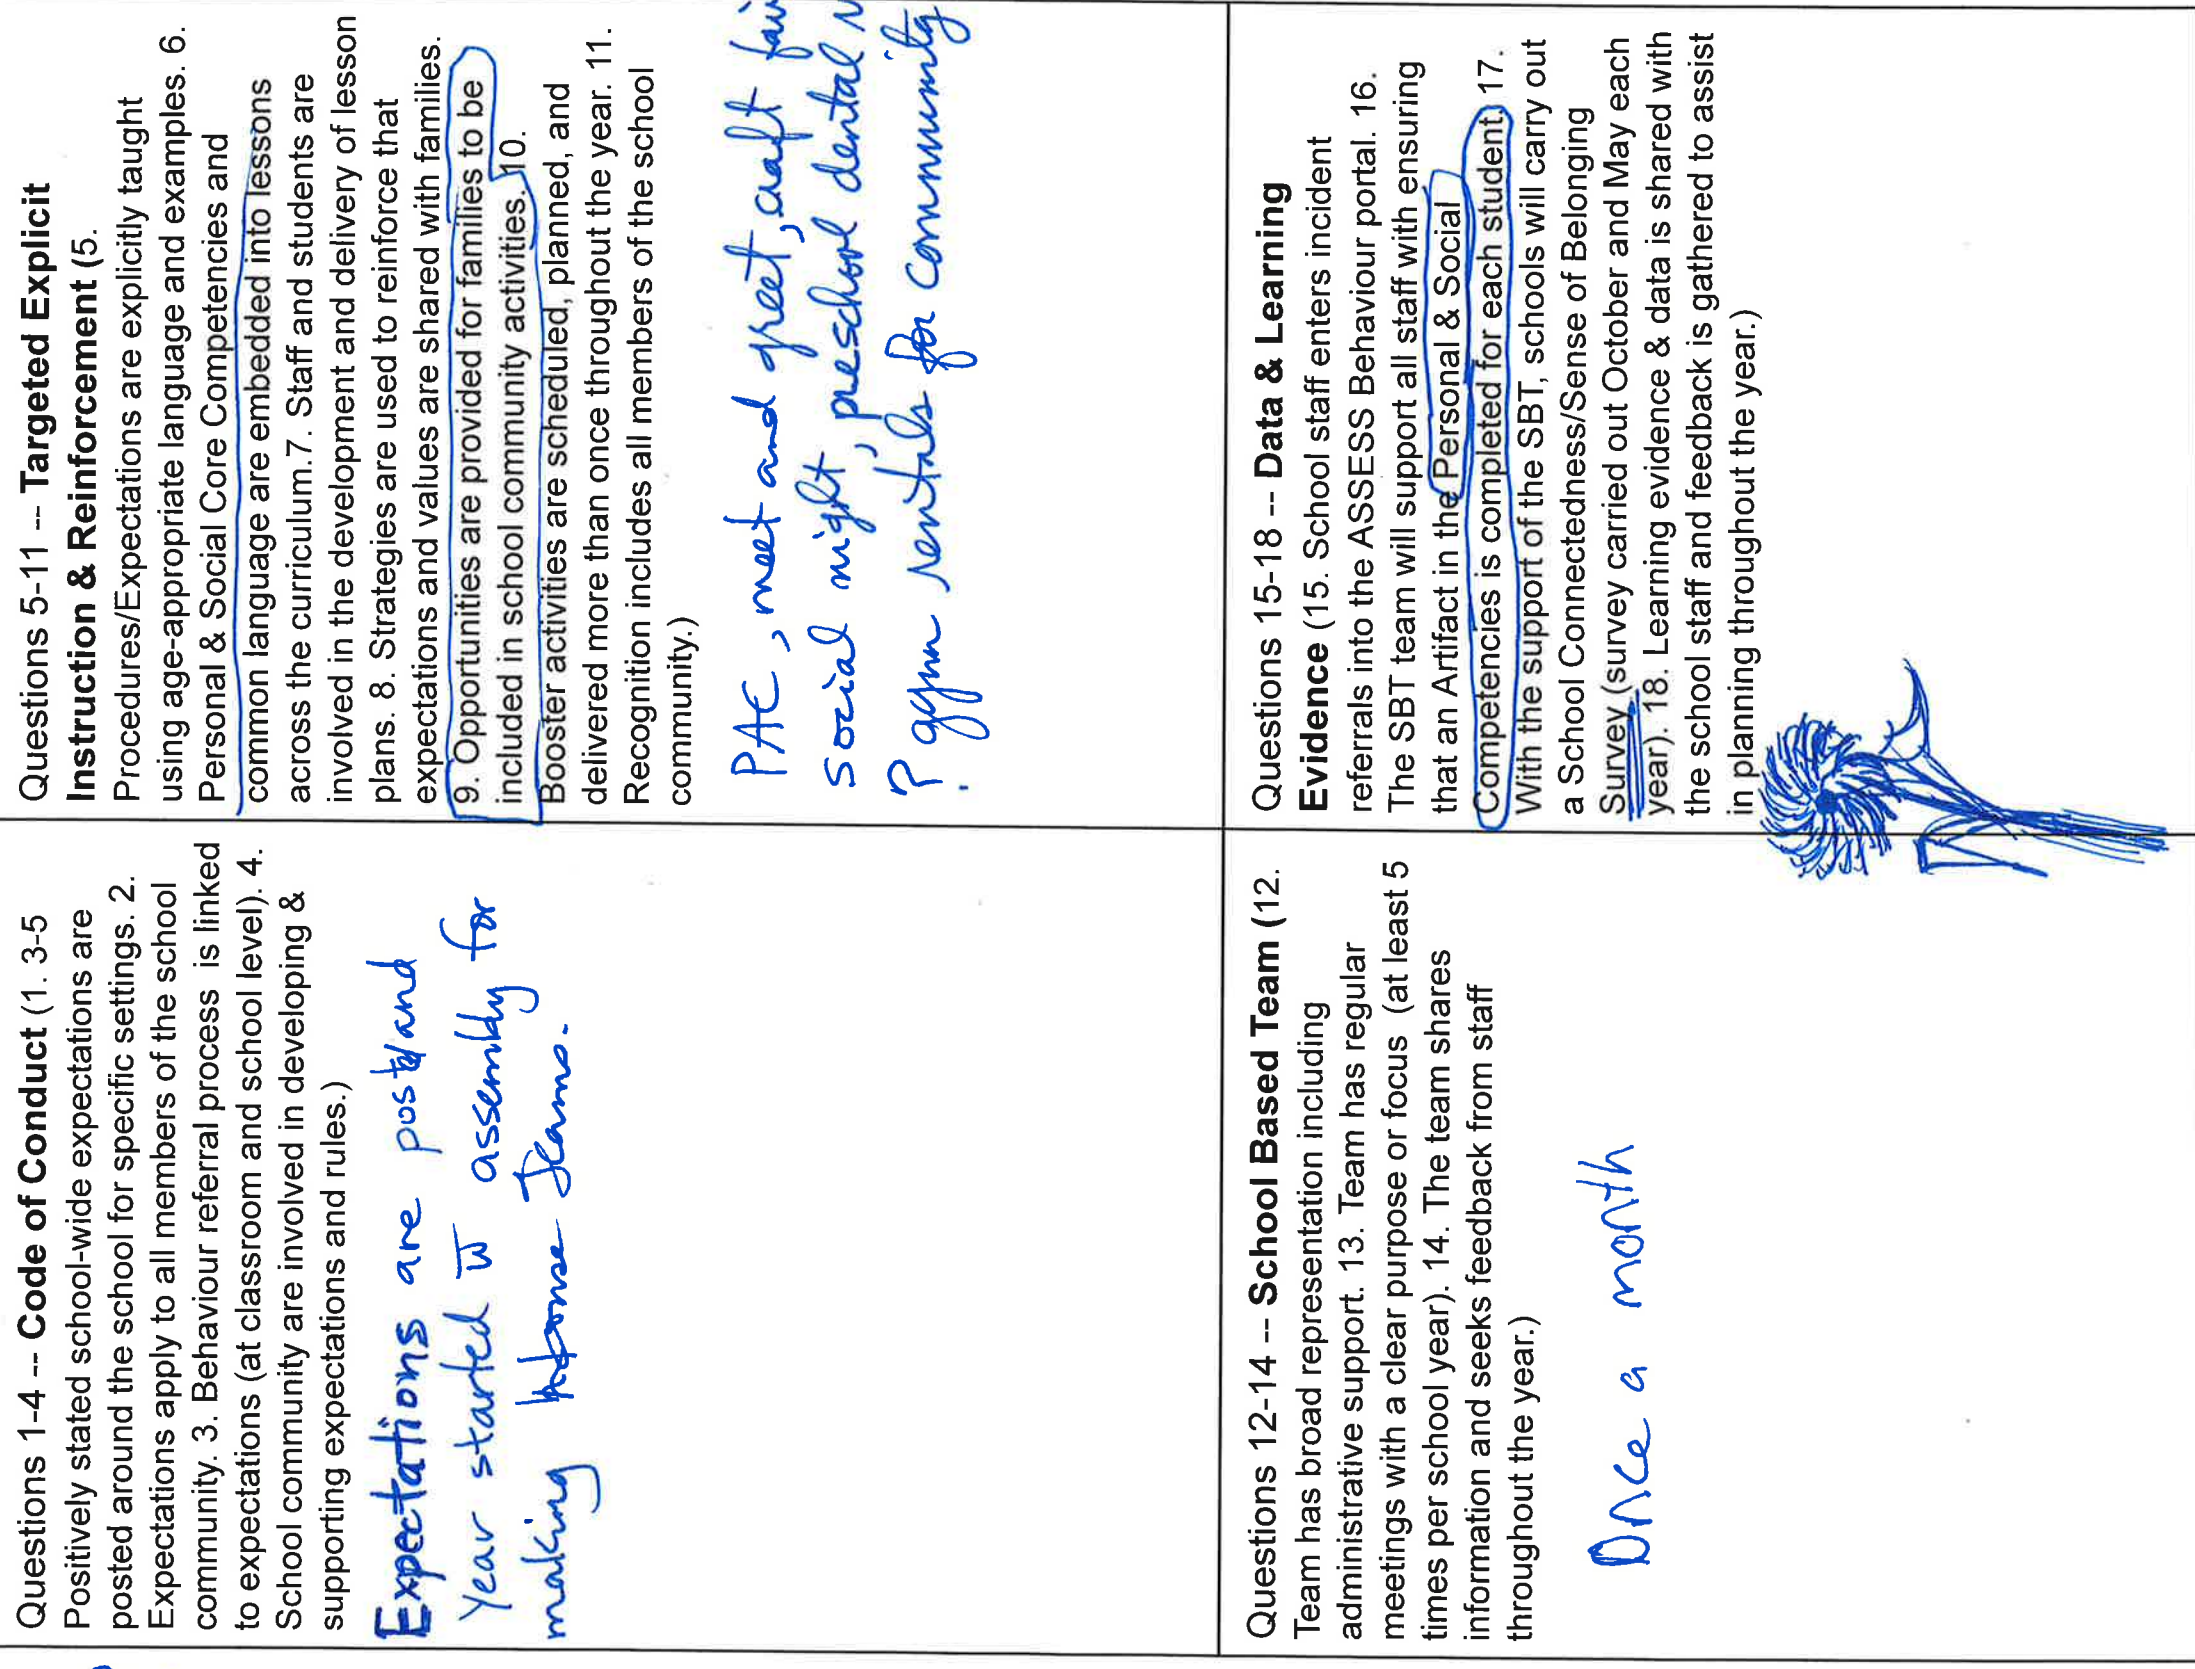 Questions 1-4 -- Code of Conduct (1. 3-5
Positively stated school-wide expectations are
posted around the school for specific settings. 2.
Expectations apply to all members of the school
community. 3. Behaviour referral process is linked
to expectations (at classroom and school level). 4.
School community are involved in developing &
supporting expectations and rules.)
Expectations are posted and
Year started w assembly for
making House Teams.
Questions 5-11 -- Targeted Explicit
Instruction & Reinforcement (5.
Procedures/Expectations are explicitly taught
using age-appropriate language and examples. 6.
Personal & Social Core Competencies and
common language are embedded into lessons
across the curriculum.7. Staff and students are
involved in the development and delivery of lesson
plans. 8. Strategies are used to reinforce that
expectations and values are shared with families.
9. Opportunities are provided for families to be
included in school community activities. 10.
Booster activities are scheduled, planned, and
delivered more than once throughout the year. 11.
Recognition includes all members of the school
community.)
PAC, meet and greet, craft
social night, preschool dental
? gym rentals for community
Questions 12-14 -- School Based Team (12.
Team has broad representation including
administrative support. 13. Team has regular
meetings with a clear purpose or focus (at least 5
times per school year). 14. The team shares
information and seeks feedback from staff
throughout the year.)
Once a month
Questions 15-18 -- Data & Learning
Evidence (15. School staff enters incident
referrals into the ASSESS Behaviour portal. 16.
The SBT team will support all staff with ensuring
that an Artifact in the Personal & Social
Competencies is completed for each student. 17.
With the support of the SBT, schools will carry out
a School Connectedness/Sense of Belonging
Survey (survey carried out October and May each
year). 18. Learning evidence & data is shared with
the school staff and feedback is gathered to assist
in planning throughout the year.)